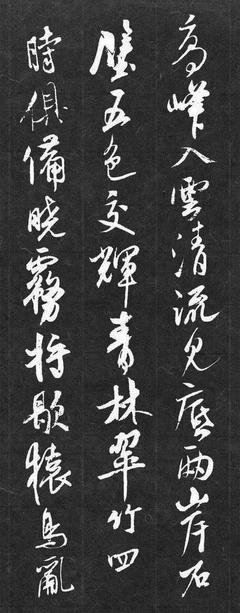 高峰入雲清流見底兩岸石
壁五色交輝青林翠竹四
時俱備曉霧將歇猿鳥亂